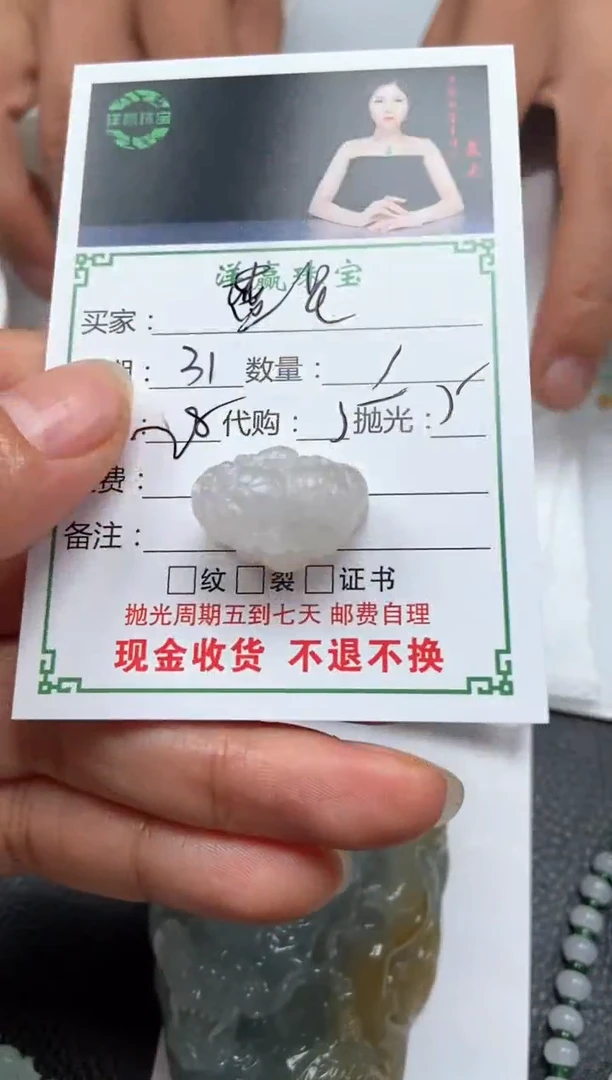 洋赢珠宝
洋赢珠宝
买家：
期：31 数量：1
：28 代购： 抛光：
费：
备注：
□纹 □裂 □证书
抛光周期五到七天 邮费自理
现金收货 不退不换